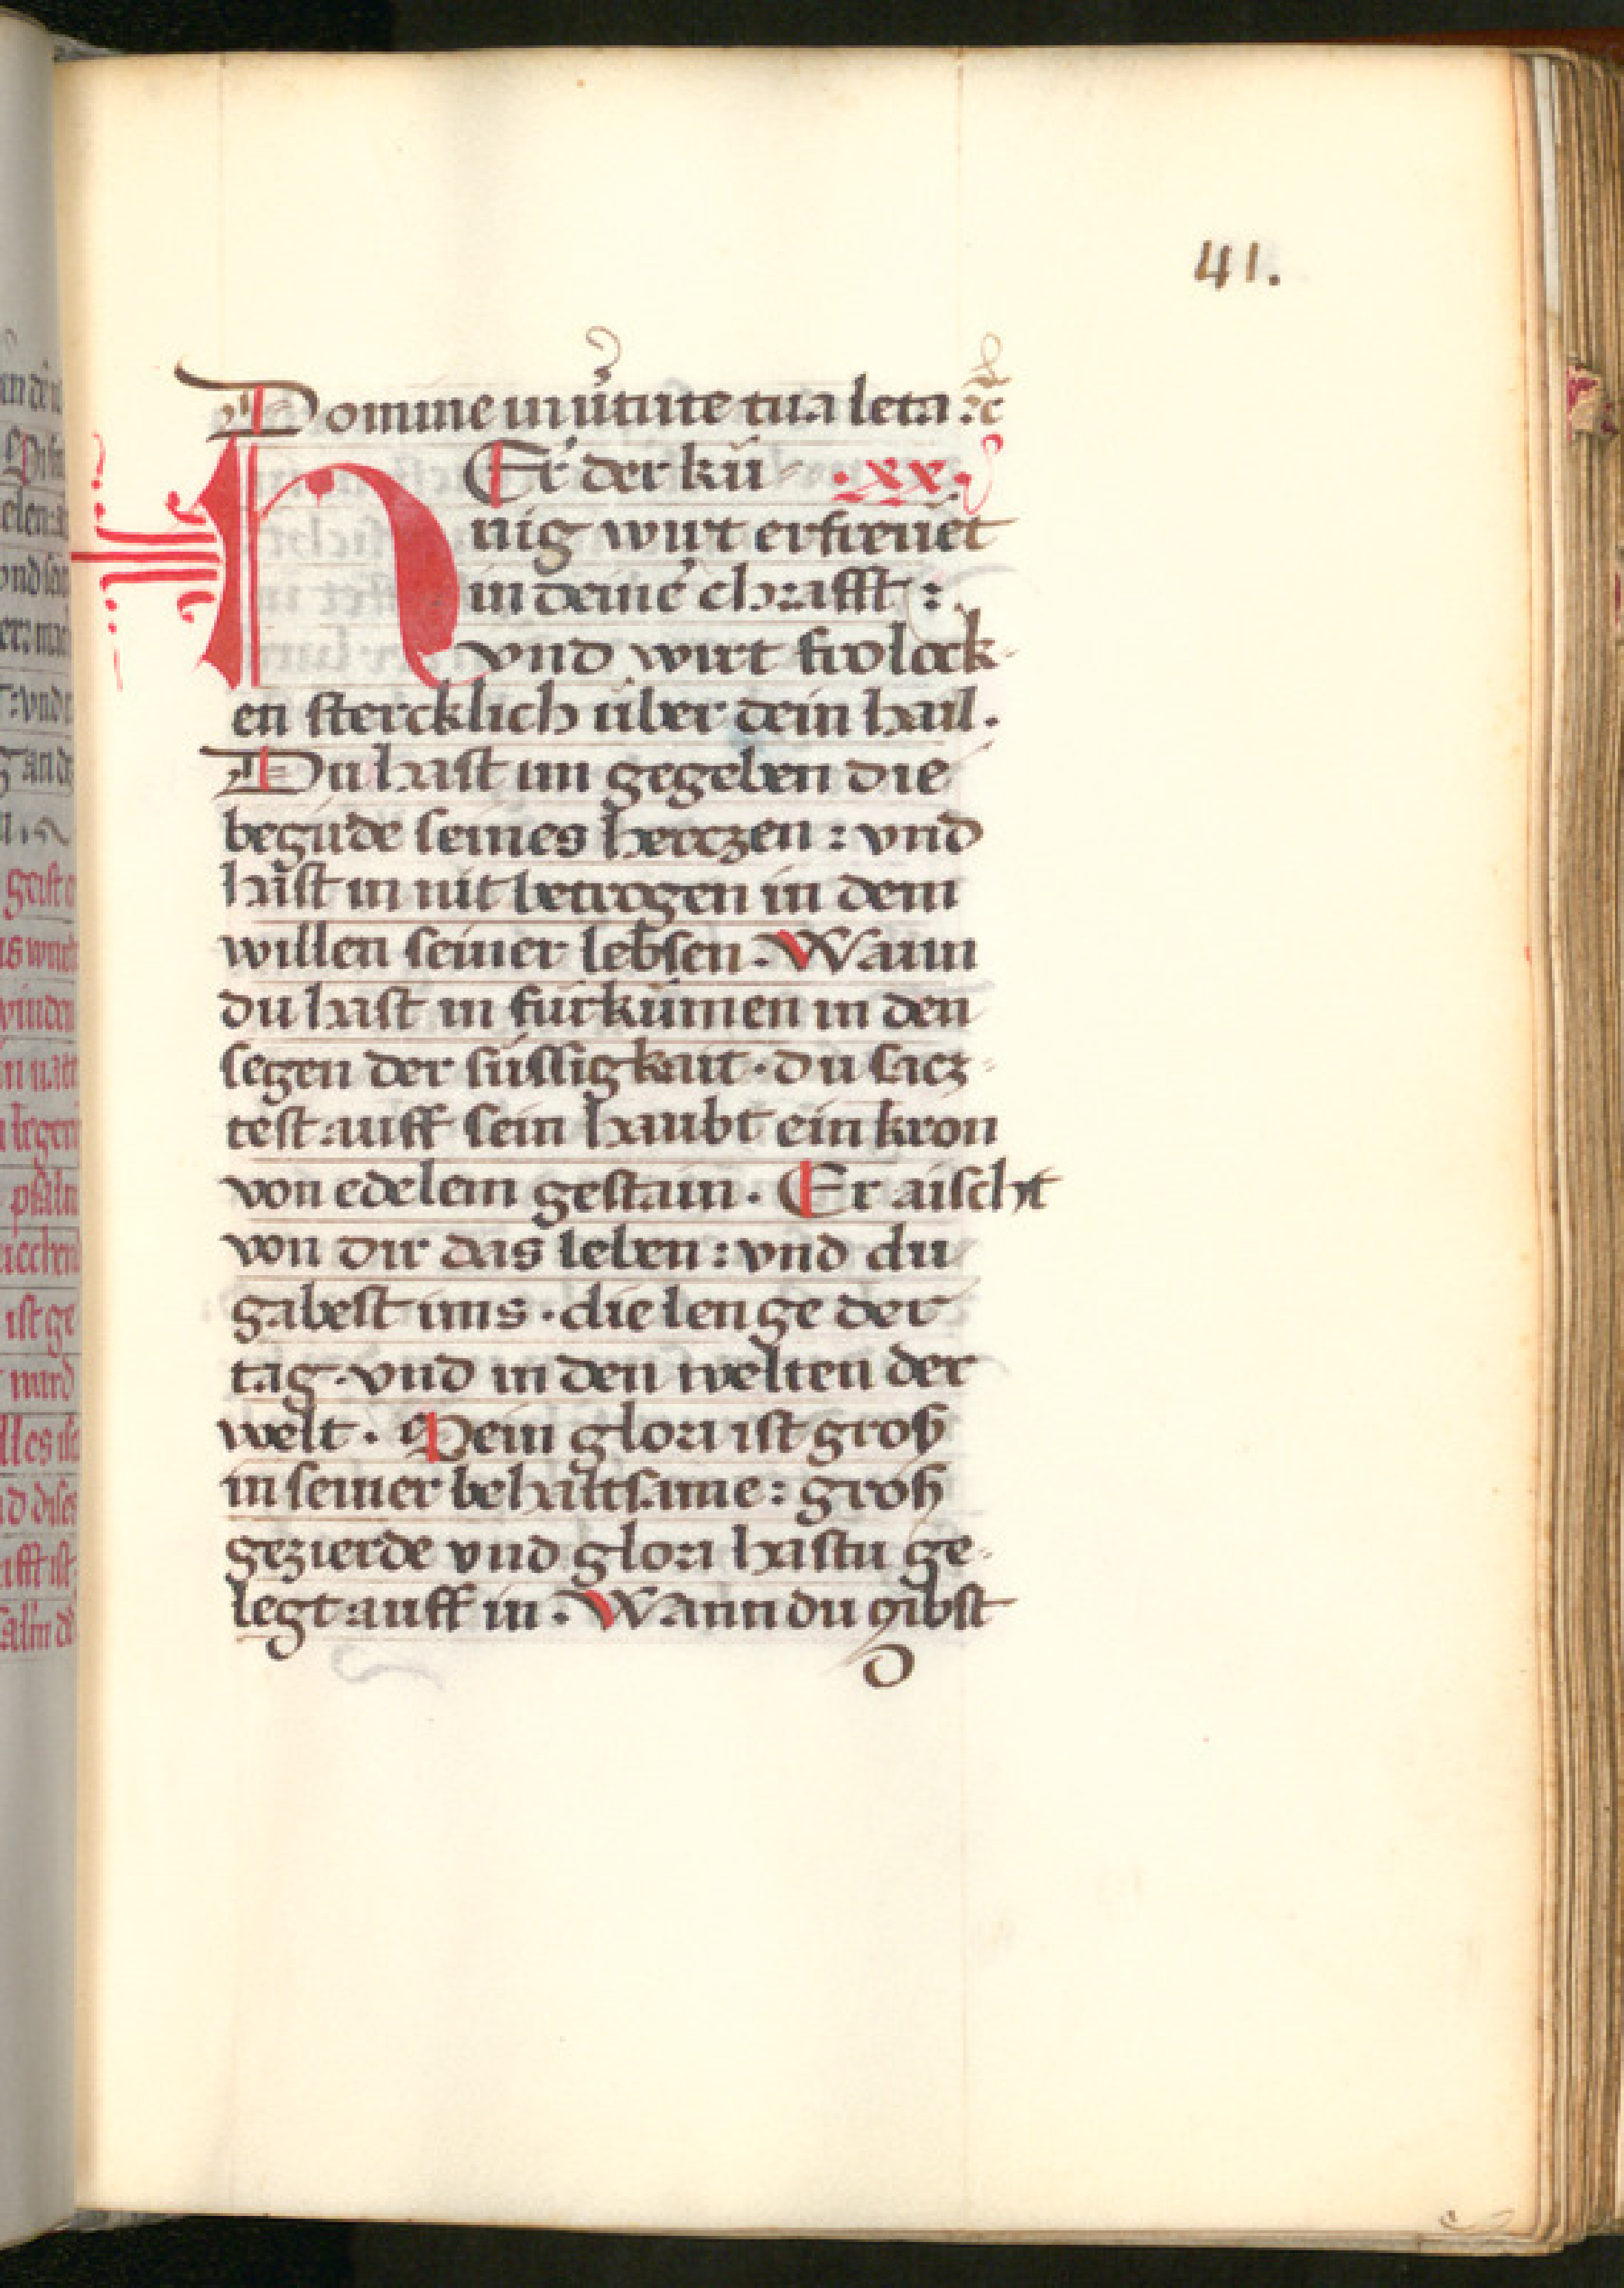 41.
Domine uirtute tua leta ⁊c̄
HEr̃ der kü- ·xx·
nig wirt erfreuet
in deine᷑ chrafft :
vnd wirt frolock-
en stercklich über dein hail.
Du hast im gegeben die
begirde seines herczen : vnd
hast in nit betrogen in dem
willen seiner lebsen. Wann
du hast in fürkümen in den
segen der süssigkait · du sacz-
test auff sein haubt ein kron
von edelem gestain. Er aischt
von dir das leben : vnd du
gabest ims · die lenge der
tag · vnd in den welten der
welt. Sein glori ist groß
in seiner behaltsame : groß
gezierde vnd glori hastu ge-
legt auff in. Wann du gibst